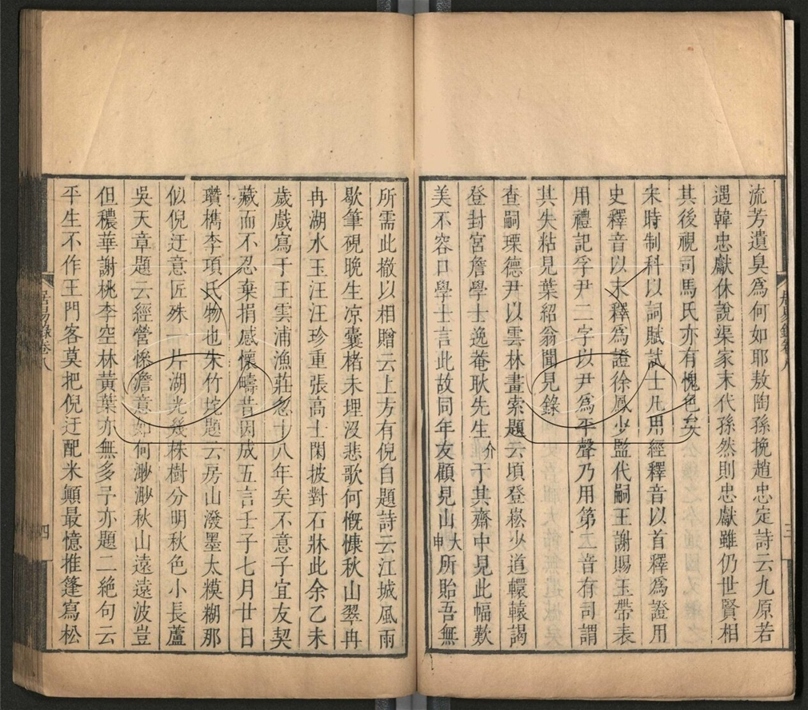 流芳遺臭爲何如耶敖陶孫挽趙忠定詩云九原若
遇韓忠獻休說渠家末代孫然則忠獻雖仍世賢相
其後視司馬氏亦有愧色矣
宋時制科以詞賦試士凡用經釋音以首釋爲證用
史釋音以末釋爲證徐鳳少監代嗣王謝賜玉帶表
用禮記孚尹二字以尹爲平聲乃用第二音有司謂
其失粘見葉紹翁聞見錄
查嗣瑮德尹以雲林畫索題云頃登崧少道轘轅謁
登封宮詹學士逸菴耿先生介于其齋中見此幅歎
美不容口學士言此故同年友顧見山大申所貽吾無
所需此撤以相贈云上方有倪自題詩云江城風雨
歇筆硯晚生凉囊楮未埋沒悲歌何慨慷秋山翠冉
冉湖水玉汪汪珍重張高士閑披對石牀此余乙未
歲戲寫于王雲浦漁莊忽十八年矣不意子宜友契
藏而不忍棄捐感懷疇昔因成五言壬子七月廿日
瓚檇李項氏物也朱竹垞題云房山潑墨太糢糊那
似倪迂意匠殊一片湖光幾株樹分明秋色小長蘆
吳天章題云經營慘澹意如何渺渺秋山遠遠波豈
但穠華謝桃李空林黃葉亦無多予亦題二絶句云
平生不作王門客莫把倪迂配米顛最憶推篷寫松
三
四